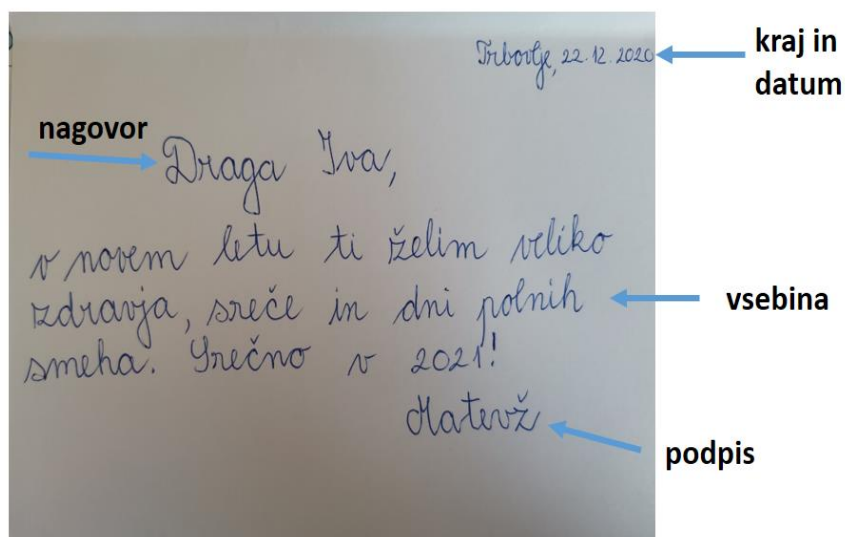 Trbovlje, 22.12.2020
kraj in
datum
nagovor
Draga Iva,
v novem letu ti želim veliko
zdravja, sreče in dni polnih
vsebina
smeha. Srečno v 2021!
Matevž
podpis